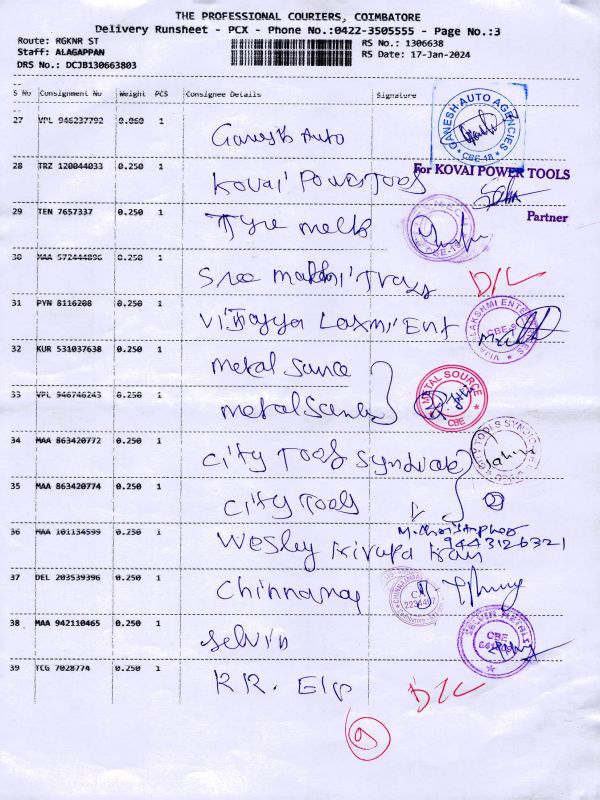 THE PROFESSIONAL COURIERS, COIMBATORE
Delivery Runsheet - PCX - Phone No.:0422-3505555 - Page No.:3
Route: RGKNR ST
RS No.: 1306638
Staff: ALAGAPPAN
RS Date: 17-Jan-2024
DRS No.: DCJB130663803
S No Consignment No Weight PCS Consignee Details Signature
27 VPL 946237792 0.060 1 Ganesh Auto
GANESH AUTO AGENCIES CBE-18
28 TRZ 120044033 0.250 1 Kovai Power Tools
For KOVAI POWER TOOLS
Partner
29 TEN 7657337 0.250 1 Tyre
30 MAA 572444896 0.250 1 Sree D/L
31 PYN 8116208 0.250 1 Vijayya Laxmi Ent
LAKSHMI ENTER CBE-9
32 KUR 531037638 0.250 1 Metal Source
33 VPL 946746243 0.250 1 Metal Source
METAL SOURCE CBE
34 MAA 863420772 0.250 1 City Tools Syndicate
TOOLS SYNDIC
35 MAA 863420774 0.250 1 City Tools
2
36 MAA 101134599 0.250 1 Wesley
9443126321
37 DEL 203539396 0.250 1
38 MAA 942110465 0.250 1 Selvin
SELVIN METALS CBE
39 TCG 7028774 0.250 1 R.R. D/L
9